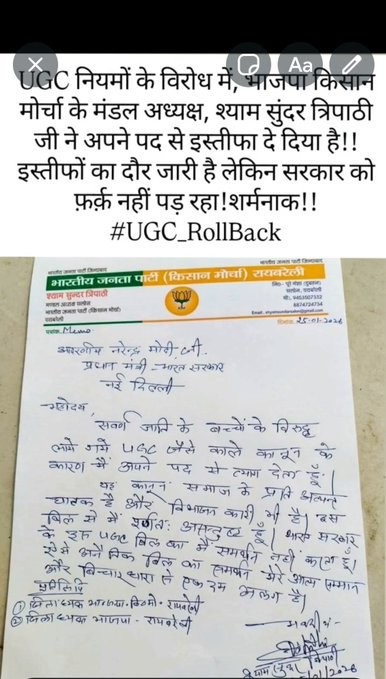 UGC नियमों के विरोध में, भाजपा किसान
मोर्चा के मंडल अध्यक्ष, श्याम सुंदर त्रिपाठी
जी ने अपने पद से इस्तीफा दे दिया है!!
इस्तीफों का दौर जारी है लेकिन सरकार को
फ़र्क़ नहीं पड़ रहा!शर्मनाक!!
#UGC_RollBack
Aa
भारतीय जनता पार्टी जिन्दाबाद
भारतीय जनता पार्टी जिन्दाबाद
भारतीय जनता पार्टी (किसान मोर्चा) रायबरेली
श्याम सुन्दर त्रिपाठी
मण्डल अध्यक्ष सलोन
भारतीय जनता पार्टी (किसान मोर्चा)
रायबरेली
सलोन, रायबरेली
मो.: 9453507332
6874724734
पत्रांक Memo
दिनांक 25-01-2026
आदरणीय नरेन्द्र मोदी जी
प्रधान मंत्री भारत सरकार
नई दिल्ली
महोदय,
सवर्ण जाति के बच्चों के विरुद्ध
लाये गये UGC जैसे काले कानून के
कारण मैं अपने पद से त्याग देता हूँ।
यह कानून समाज के प्रति अत्यन्त
घातक है और विभाजन कारी भी है। इस
बिल से मैं पूर्णतः असन्तुष्ट हूँ। भारत सरकार
के इस UGC बिल का मैं समर्थन नहीं करता हूँ।
ऐसे अनैतिक बिल का समर्थन मेरे आत्म सम्मान
और विचार धारा से एकदम अलग है।
प्रतिलिपि
① जिलाध्यक्ष भाजपा किसान रायबरेली
② जिलाध्यक्ष भाजपा - रायबरेली
भवदीय -
श्याम सुन्दर त्रिपाठी